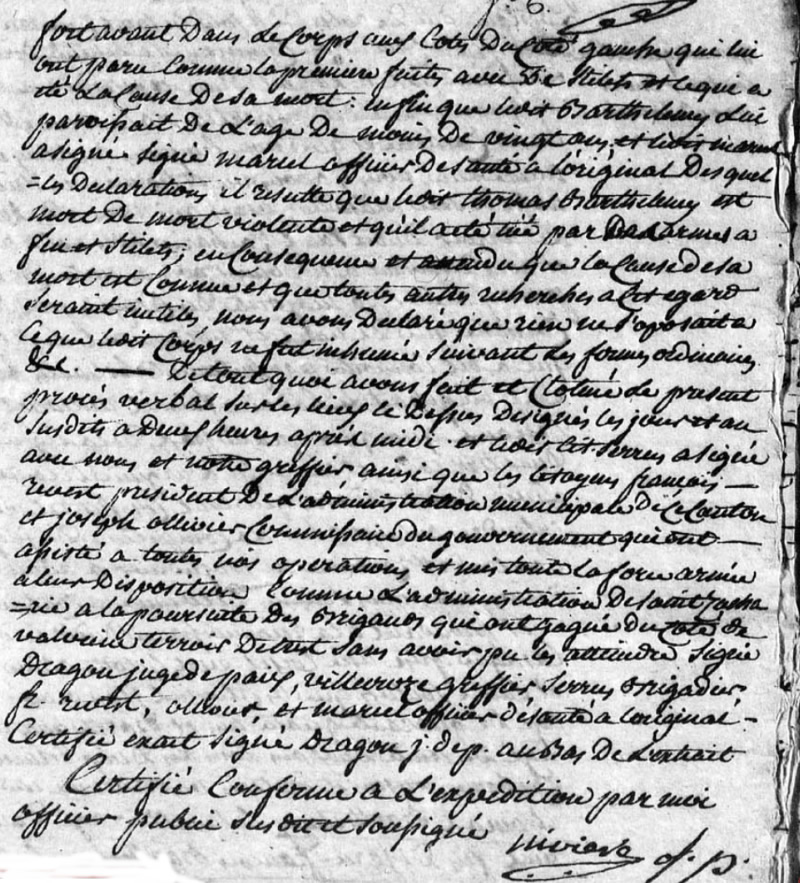 f. 6.
fort avant Dans Le Corps aux Cotes Du Coté gauche qui lui
ont paru Comme la premiere faites avec De Stilets et ce qui a
été La Cause De sa mort: enfin que ledit Barthelemy Lui
paroissait De L'age De moins De vingt ans et ledit marcel
a signé signé marcel officier De santé a l'original Des quel
=les Declarations il resulte que ledit thomas Barthelemy est
mort De mort violente et qu'il a été tué par armes a
feu et Stilets, en Consequence et attendu que la Cause De sa
mort est Connue et que toutes autres recherches a Cet egard
seraient inutiles, nous avons Declaré que rien ne s'oposait a
Ce que ledit Corps ne fut inhumé suivant les formes ordinaires
&c. — De tout quoi avons fait et Cloturé Le present
procés verbal sur les lieux Ci Dessus Designés les jour et an
susdits a Deux heures aprés midi et ledit Cit Serres a signé
avec nous et notre greffier ainsi que les Citoyens françois —
revest president De L'administration municipale De Ce Canton
et joseph ollivier Commissaire du gouvernement qui ont —
assisté a toutes nos operations et mis toute la force armée
a leur Disposition Comme L'administration De saint Zacha
=rie a la poursuite Des Brigands qui ont gagné Du Coté De
terroir sans avoir pu les atteindre signé
Dragon juge de paix, villecroze greffier Serres Brigadier
fr. revest, et marcel officier De santé a l'original -
Certifié exact signé Dragon j. de p. au Bas De L'extrait
Certifié Conforme a L'expedition par moi
officier public susdit et soussigné
o. p.